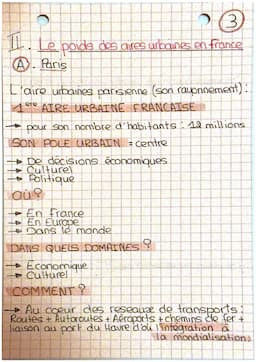 3
II. Le poids des aires urbaines en france
A. Paris
L'aire urbaine parisienne (son rayonnement):
1ère AIRE URBAINE FRANCAISE
→ pour son nombre d'habitants : 12 millions
SON POLE URBAIN = centre
→ De décisions économiques
→ Culturel
→ Politique
OÙ?
→ En france
→ En Europe
→ Dans le monde
DANS QUELS DOMAINES?
→ Economique
→ Culturel
COMMENT?
→ Au coeur des reseaux de transports:
Routes + Autoroutes + Aéroports + chemins de fer +
liaison au port du Havre d'où l'intégration à
la mondialisation.